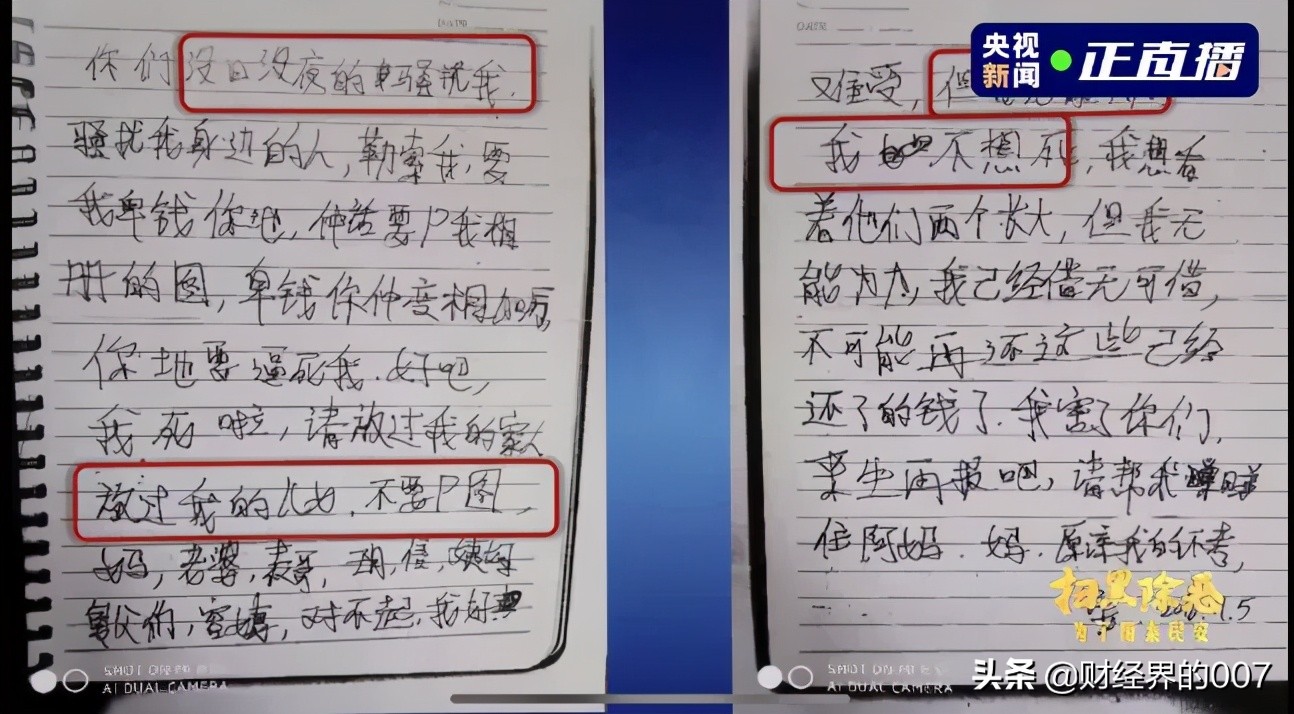 你们没日没夜的骚扰我.
骚扰我身边的人,勒索我,要
我卑钱你地,仲话要P我相
册的图,卑钱你仲变相加厉,
你地要逼死我.好吧,
我死啦,请放过我的家人
放过我的儿女.不要P图,
妈,老婆,表哥,
们,容姨,对不起,我好
SHOT ON
AI DUAL CAMERA
央视
新闻
正直播
难受,但
我不想死,我想看
着他们两个长大,但我无
能为力,我已经借无可借,
不可能再还这些已经
还了的钱了.我害了你们,
来生再报吧,请帮我
住阿妈.妈.原谅我的不孝,
扫黑除恶
为了国泰民安
SHOT ON
AI DUAL CAMERA
头条 @财经界的007